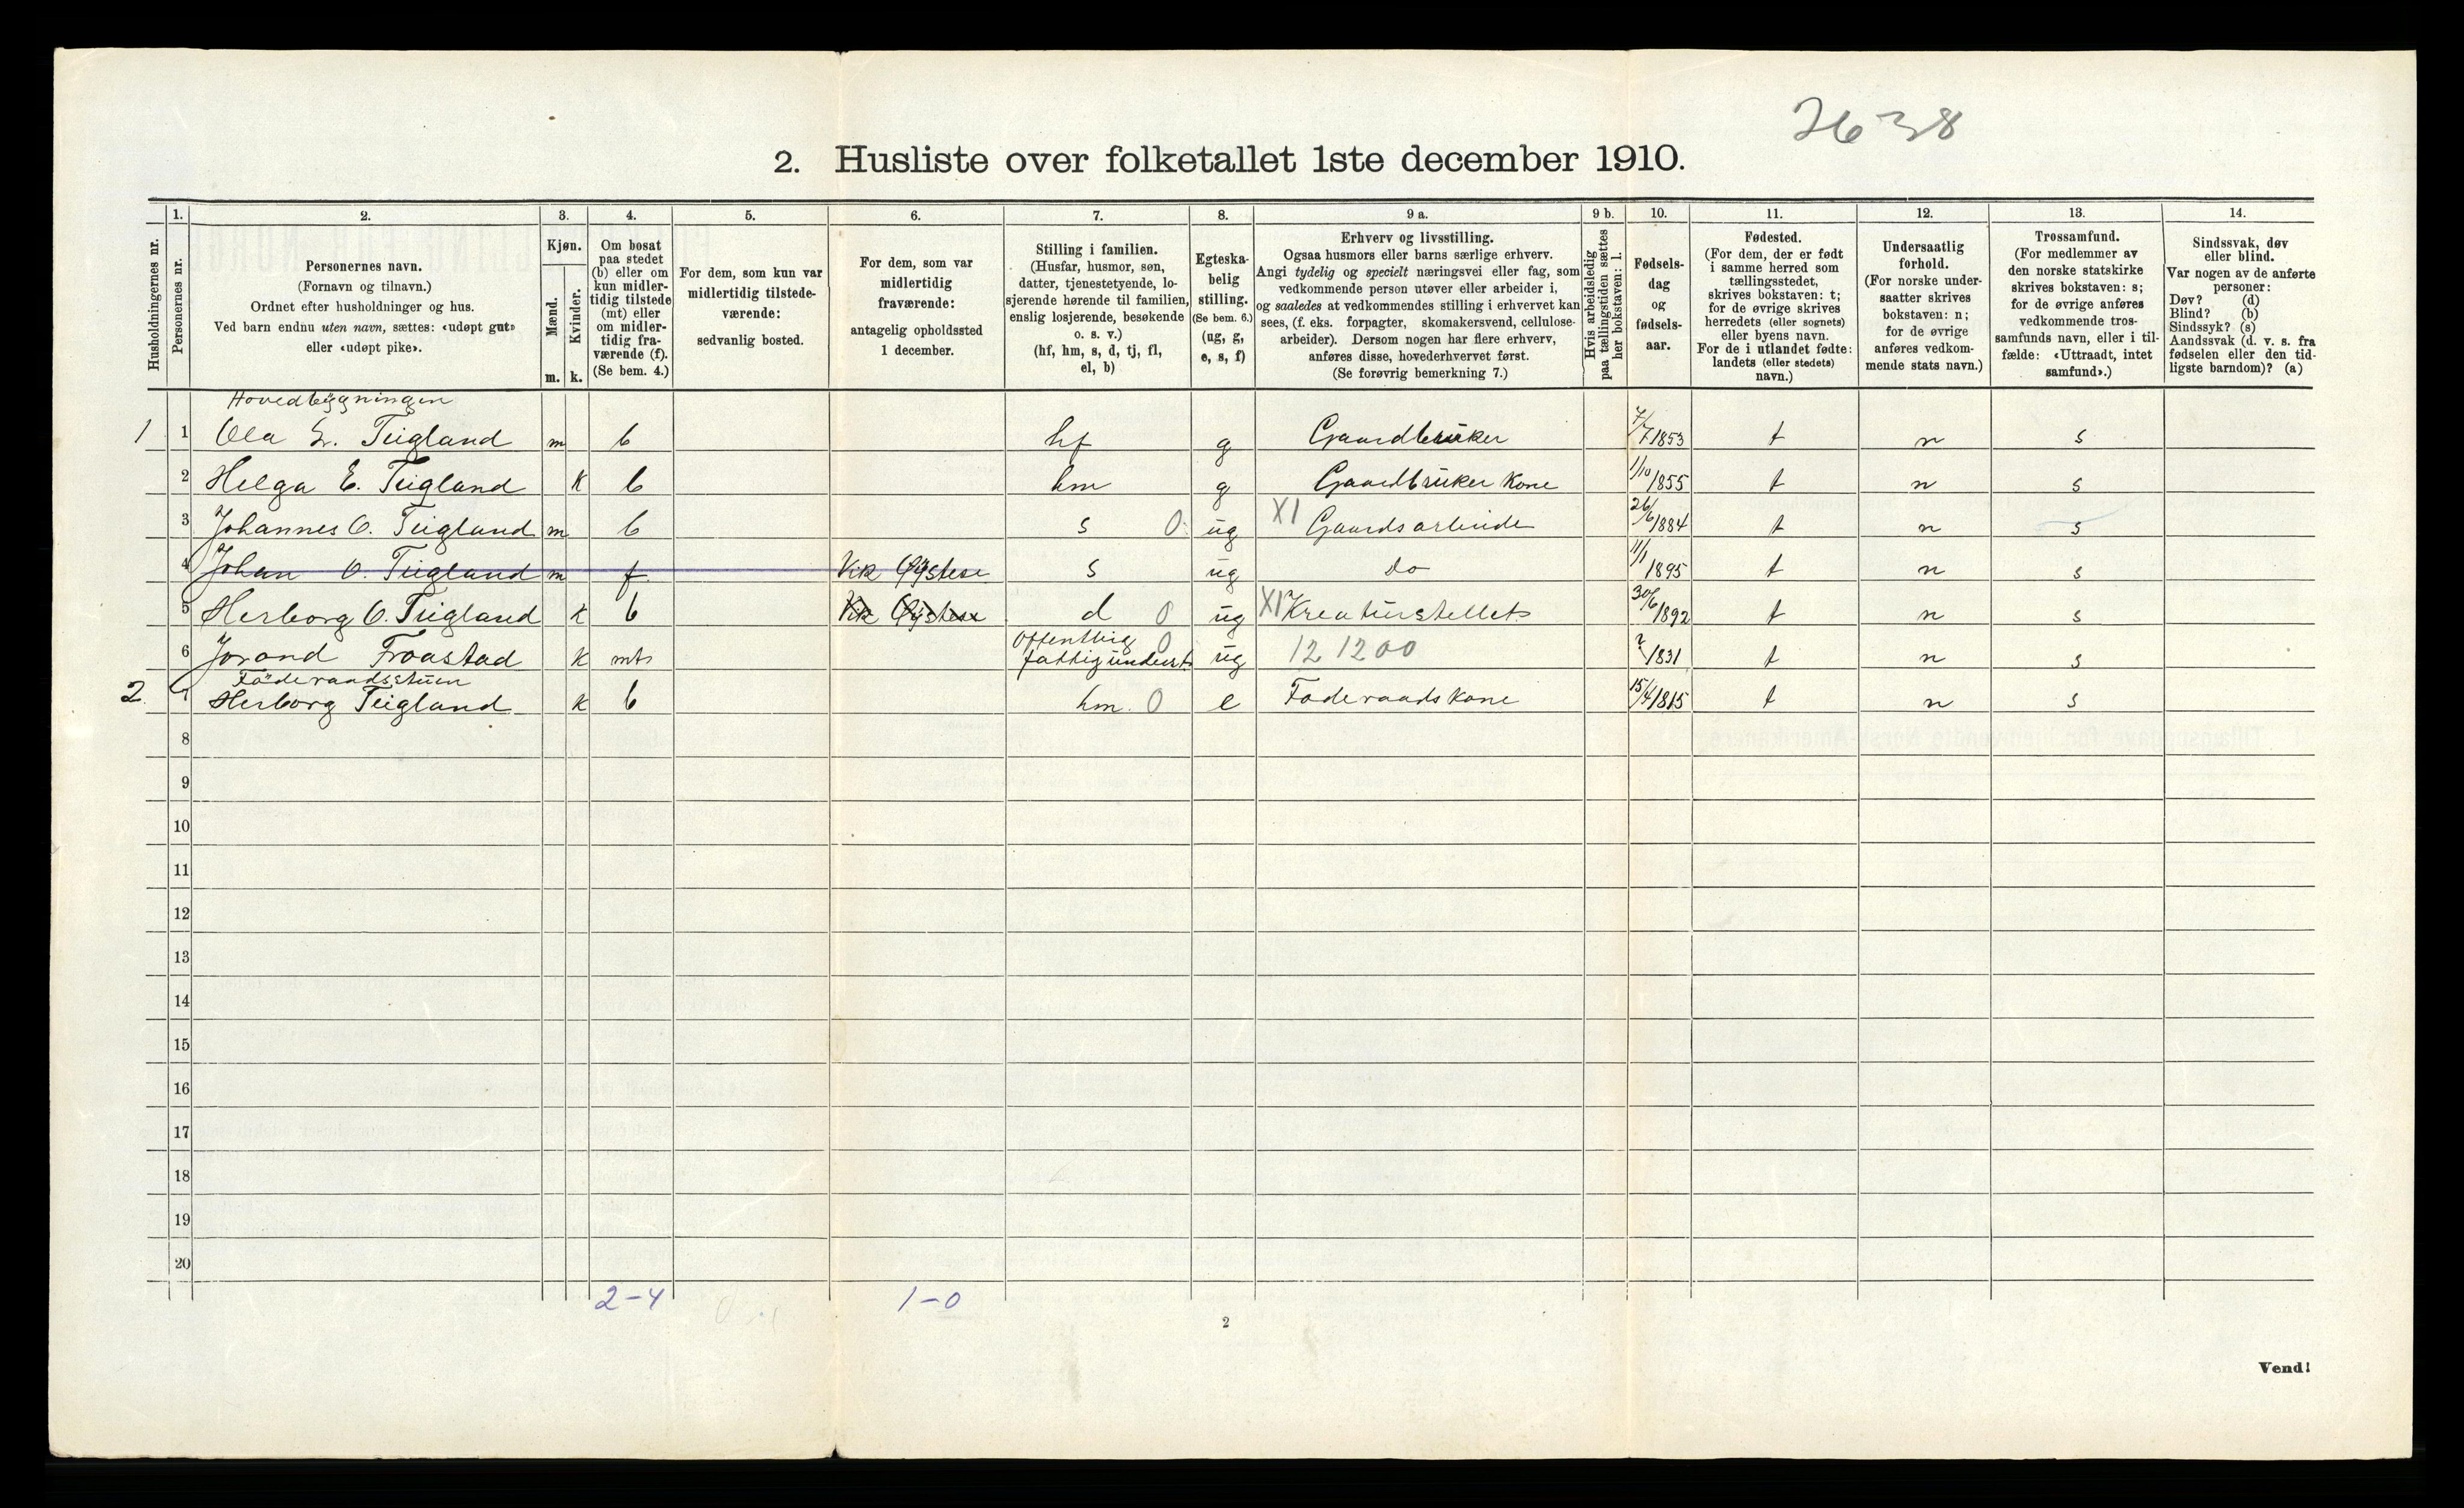 2638
2. Husliste over folketallet 1ste december 1910.
Husholdningernes nr.
1. Personernes nr.
2. Personernes navn. (Fornavn og tilnavn.) Ordnet efter husholdninger og hus. Ved barn endnu uten navn, sættes: «udøpt gut» eller «udøpt pike».
3. Kjøn. Mænd. m. Kvinder. k.
4. Om bosat paa stedet (b) eller om kun midlertidig tilstede (mt) eller om midlertidig fraværende (f). (Se bem. 4.)
5. For dem, som kun var midlertidig tilstedeværende: sedvanlig bosted.
6. For dem, som var midlertidig fraværende: antagelig opholdssted 1 december.
7. Stilling i familien. (Husfar, husmor, søn, datter, tjenestetyende, losjerende hørende til familien, enslig losjerende, besøkende o. s. v.) (hf, hm, s, d, tj, fl, el, b)
8. Egteskabelig stilling. (Se bem. 6.) (ug, g, e, s, f)
9 a. Erhverv og livsstilling. Ogsaa husmors eller barns særlige erhverv. Angi tydelig og specielt næringsvei eller fag, som vedkommende person utøver eller arbeider i, og saaledes at vedkommendes stilling i erhvervet kan sees, (f. eks. forpagter, skomakersvend, cellulosearbeider). Dersom nogen har flere erhverv, anføres disse, hovederhvervet først. (Se forøvrig bemerkning 7.)
9 b. Hvis arbeidsledig paa tællingstiden sættes her bokstaven: l.
10. Fødselsdag og fødselsaar.
11. Fødested. (For dem, der er født i samme herred som tællingsstedet, skrives bokstaven: t; for de øvrige skrives herredets (eller sognets) eller byens navn. For de i utlandet fødte: landets (eller stedets) navn.)
12. Undersaatlig forhold. (For norske undersaatter skrives bokstaven: n; for de øvrige anføres vedkommende stats navn.)
13. Trossamfund. (For medlemmer av den norske statskirke skrives bokstaven: s; for de øvrige anføres vedkommende trossamfunds navn, eller i tilfælde: «Uttraadt, intet samfund».)
14. Sindssvak, døv eller blind. Var nogen av de anførte personer: Døv? (d) Blind? (b) Sindssyk? (s) Aandssvak (d. v. s. fra fødselen eller den tidligste barndom)? (a)
Hovedbygningen
1 1 Ola L. Teigland m b hf g Gaardbruker 7/7 1853 t n s
2 Helga E. Teigland k b hm g Gaardbruker Kone 1/10 1855 t n s
3 Johannes O. Teigland m b s 0 ug XI Gaardsarbeide 26/6 1884 t n s
4 Johan O. Teigland m f Vik Øystese s ug do 11/1 1895 t n s
5 Herborg O. Teigland k b Vik Øystese d 0 ug XI Kreaturstellet 30/6 1892 t n s
6 Jorand Froastad k mt Offentlig fattigunderst 0 ug 12 1200 ? 1831 t n s
Føderaadsstuen
2 7 Herborg Teigland k b hm. 0 e Føderaadskone 15/4 1815 t n s
8
9
10
11
12
13
14
15
16
17
18
19
20
2-4 1-0
2
Vend!